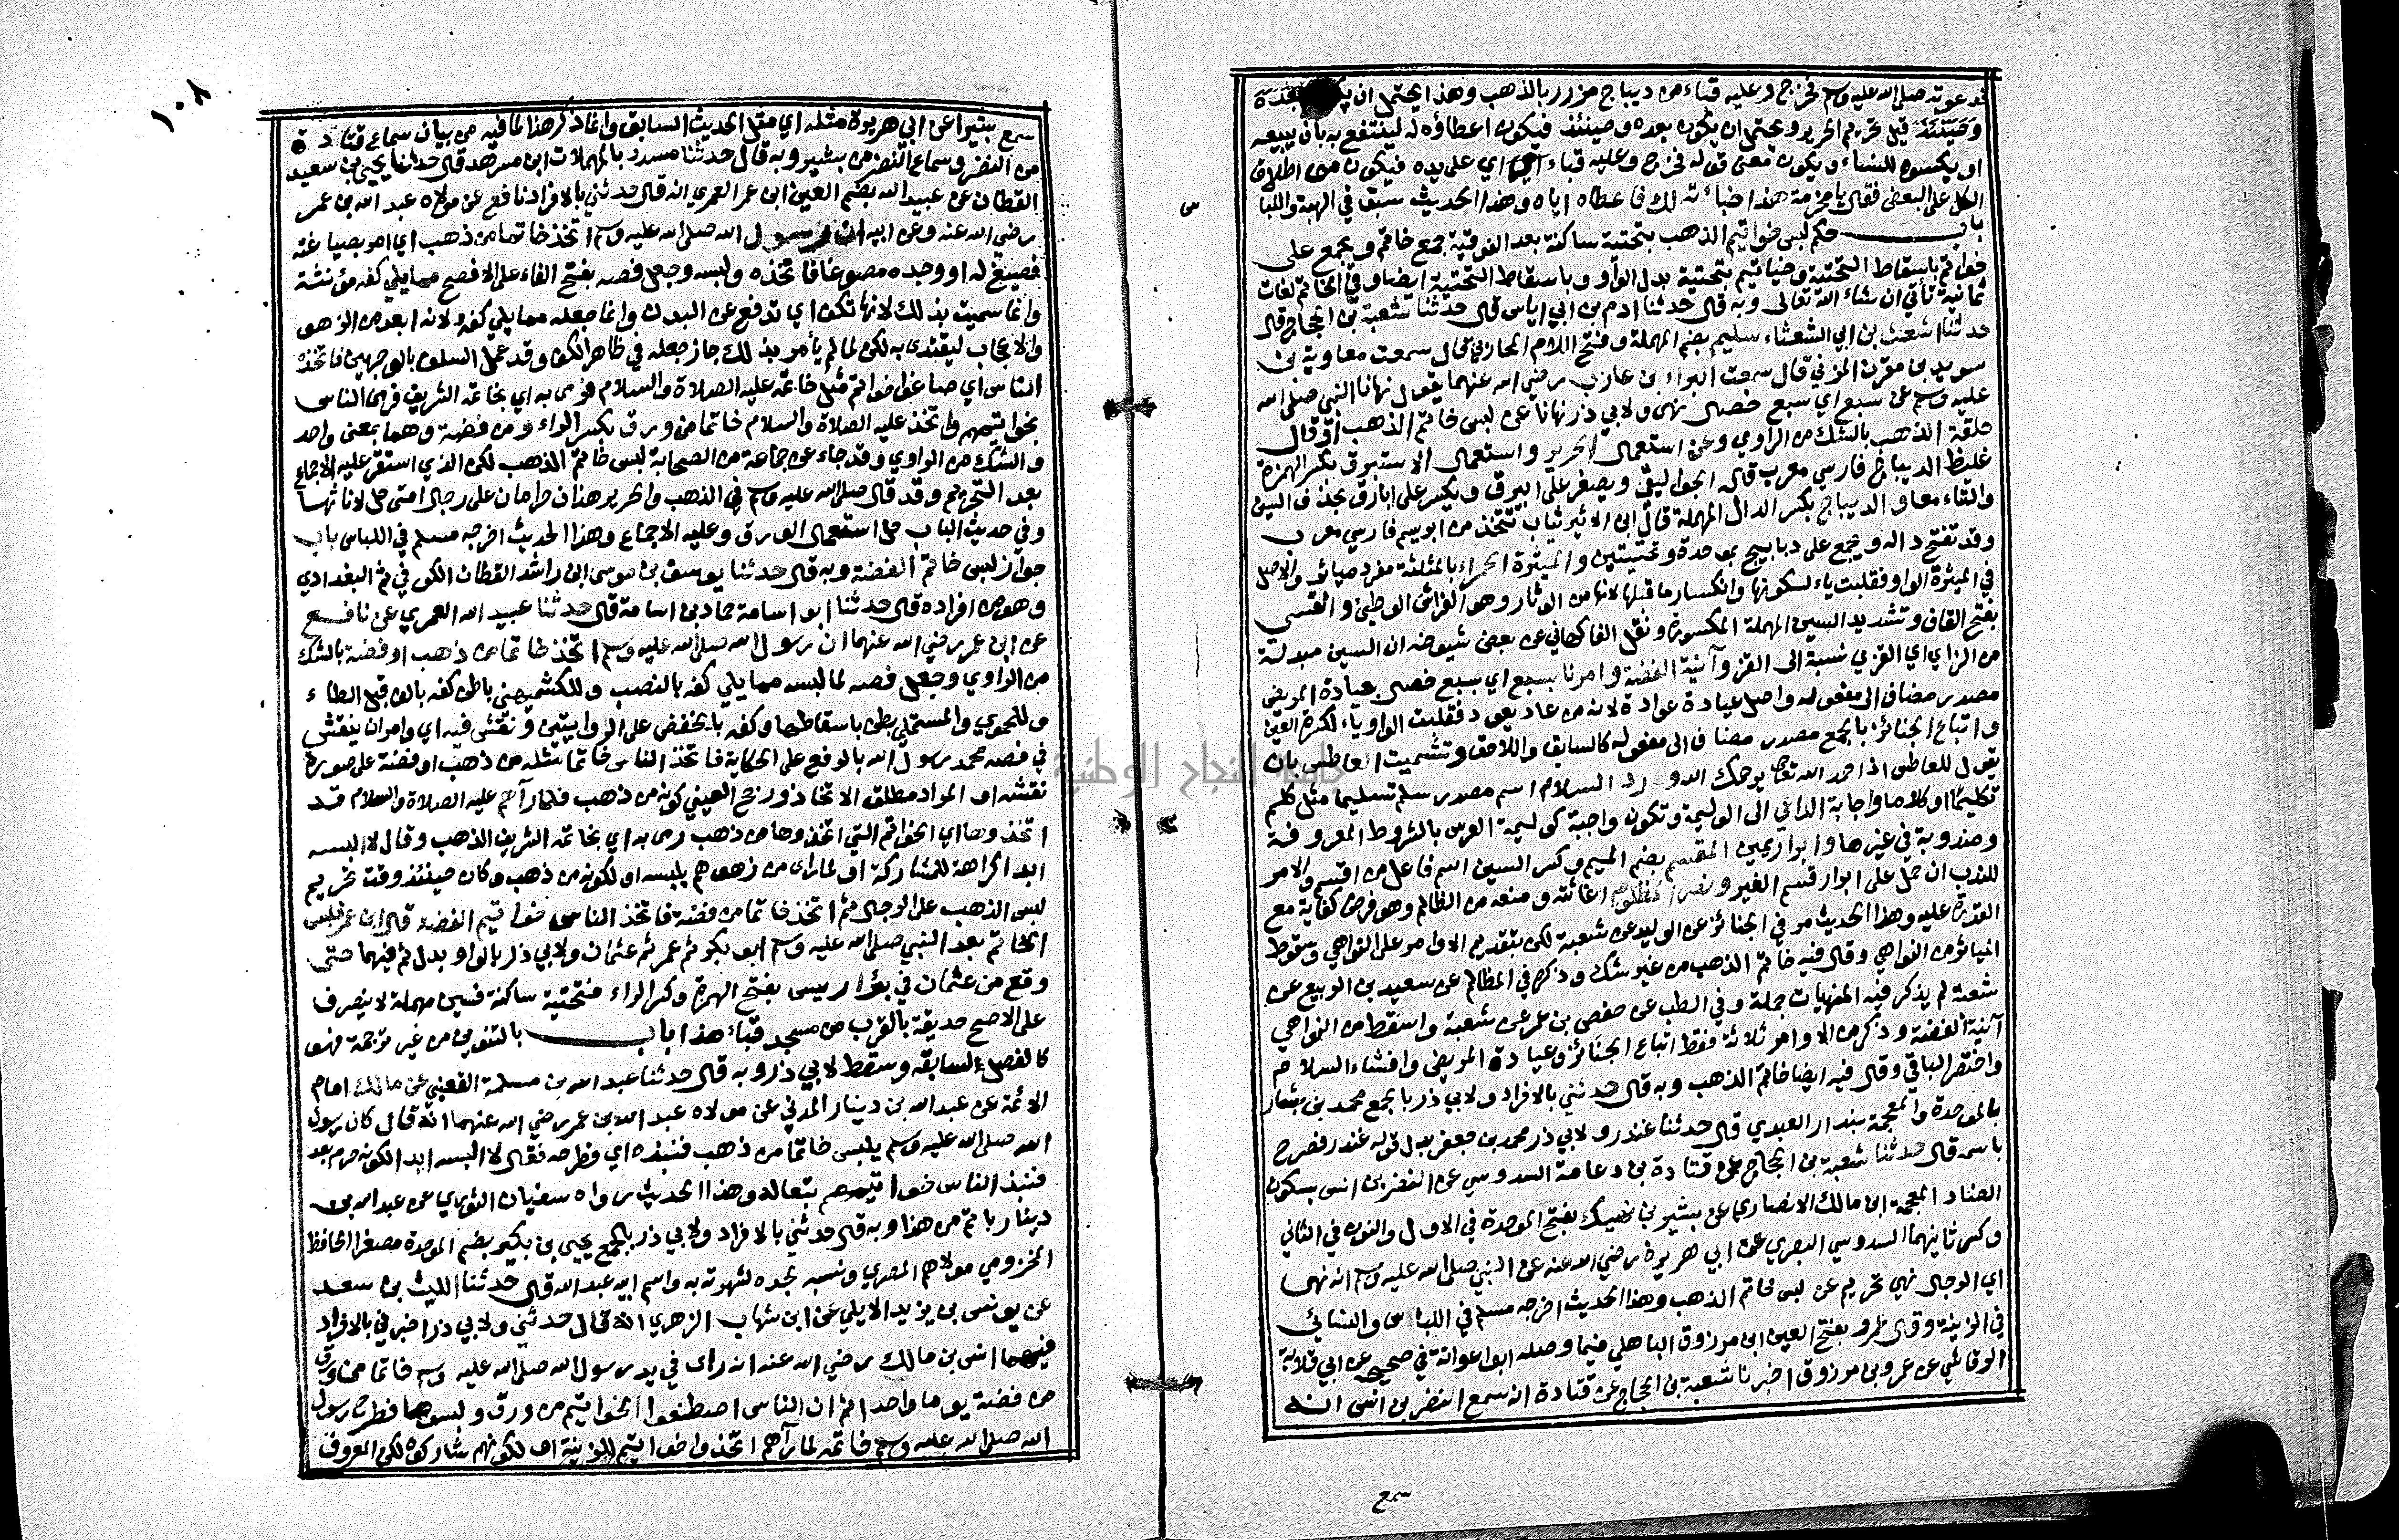 فدعوته صلى الله عليه وسلم فخرج وعليه قباء من ديباج مزرر بالذهب وهذا يحتمل ان
وحينئذ قبل تحريم الحرير ويحتمل ان يكون بعده وحينئذ فيكون اعطاؤه له لينتفع به بان يبيعه
او يكسوه للنساء ويكون معنى قوله فخرج وعليه قباء اي على يده فيكون من اطلاق
الكل على البعض فقال يا مخرمة هذا خبأته لك فاعطاه اياه وهذا الحديث سبق في الهبة واللباس
باب حكم لبس خواتيم الذهب بتحتية ساكنة بعد الفوقية جمع خاتم ويجمع على
خواتم باسقاط التحتية وخياتيم بتحتية بدل الواو وباسقاط التحتية ايضا وفي الخاتم لغات
ثمانية تأتي ان شاء الله تعالى وبه قال حدثنا ادم بن ابي اياس قال حدثنا شعبة بن الحجاج قال
حدثنا اشعث بن ابي الشعثاء سليم بضم المهملة وفتح اللام المحاربي قال سمعت معاوية بن
سويد بن مقرن المزني قال سمعت البراء بن عازب رضي الله عنهما يقول نهانا النبي صلى الله
عليه وسلم عن سبع اي سبع خصال نهى ولابي ذر نهانا عن لبس خاتم الذهب او قال
حلقة الذهب بالشك من الراوي وعن استعمال الحرير واستعمال الاستبرق بكسر الهمزة
غليظ الديباج فارسي معرب قال الجواليقي ويصغر على ابيرق ويكسر على ابارق بحذف السين
والتاء معا والديباج بكسر الدال المهملة قال ابن الاثير ثياب تتخذ من ابريسم فارسي معرب
وقد تفتح داله ويجمع على دبابيج بموحدة وتحتيتين والميثرة الحمراء بالمثلثة مفرد مياثر والاصل
في الميثرة الواو فقلبت ياء لسكونها وانكسار ما قبلها لانها من الوثار وهو الفراش الوطئ والقسي
بفتح القاف وتشديد السين المهملة المكسورة ونقل الفاكهاني عن بعض شيوخه ان السين مبدلة
من الزاي اي القزي نسبة الى القز وآنية الفضة وامرنا بسبع اي سبع خصال بعيادة المريض
مصدر مضاف الى مفعوله واصل عيادة عوادة لانه من عاد يعود فقلبت الواو ياء لكسرة العين
واتباع الجنائز بالجمع مصدر مضاف الى مفعوله كالسابق واللاحق وتشميت العاطس بان
يقول للعاطس اذا حمد الله تعالى يرحمك الله ورد السلام اسم مصدر سلم تسليما مثل كلم
تكليما او كلاما واجابة الداعي الى الوليمة وتكون واجبة كوليمة العرس بالشروط المعروفة
ومندوبة في غيرها وابرار يمين المقسم بضم الميم وكسر السين اسم فاعل من اقسم والامر
للندب ان حمل على ابرار قسم الغير ونصر المظلوم اغاثته ومنعه من الظالم وهو فرض كفاية مع
القدرة عليه وهذا الحديث مر في الجنائز عن ابي الوليد عن شعبة لكن بتقديم الاوامر على النواهي وسقوط
المياثر من النواهي وقال فيه خاتم الذهب من غير شك وذكره في المظالم عن سعيد بن الربيع عن
شعبة لم يذكر فيه المنهيات جملة وفي الطب عن حفص بن عمر عن شعبة واسقط من النواهي
آنية الفضة وذكر من الاوامر ثلاثة فقط اتباع الجنائز وعيادة المريض وافشاء السلام
واختصر الباقي وقال فيه ايضا خاتم الذهب وبه قال حدثني بالافراد ولابي ذر بالجمع محمد بن بشار
بالموحدة والمعجمة بندار العبدي قال حدثنا غندر ولابي ذر محمد بن جعفر بدل قوله غندر فصرح
باسمه قال حدثنا شعبة بن الحجاج عن قتادة بن دعامة السدوسي عن النضر بن انس بسكون
الضاد المعجمة ابن مالك الانصاري عن بشير بن نهيك بفتح الموحدة في الاول والنون في الثاني
وكسر ثانيهما السدوسي البصري عن ابي هريرة رضي الله عنه عن النبي صلى الله عليه وسلم انه نهى
اي الرجال نهي تحريم عن لبس خاتم الذهب وهذا الحديث اخرجه مسلم في اللباس والنسائي
في الزينة وقال عمرو بفتح العين ابن مرزوق الباهلي فيما وصله ابو عوانة في صحيحه عن ابي قلابة
الرقاشي عن عمرو بن مرزوق اخبرنا شعبة بن الحجاج عن قتادة انه سمع النضر بن انس انه
سمع
١٠٨
سمع بشيرا عن ابي هريرة مثله اي مثل الحديث السابق وانما ذكر هذا لما فيه من بيان سماع قتادة
من النضر وسماع النضر من بشير وبه قال حدثنا مسدد بالمهملات ابن مسرهد قال حدثنا يحيى بن سعيد
القطان عن عبيد الله بضم العين ابن عمر العمري انه قال حدثني بالافراد نافع عن مولاه عبد الله بن عمر
رضي الله عنه وعن ابيه ان رسول الله صلى الله عليه وسلم اتخذ خاتما من ذهب اي امر بصياغته
فصيغ له او وجده مصوغا فاتخذه ولبسه وجعل فصه بفتح الفاء على الافصح مما يلي كفه مؤنثة
وانما سميت بذلك لانها تكف اي تدفع عن البدن وانما جعله مما يلي كفه لانه ابعد من الزهو
والاعجاب ليقتدى به لكن لما لم يأمر بذلك جاز جعله في ظاهر الكف وقد عمل السلف بالوجهين فاتخذه
الناس اي صاغوا خواتم مثل خاتمه عليه الصلاة والسلام فرمى به اي بخاتمه الشريف فرمى الناس
بخواتيمهم واتخذ عليه الصلاة والسلام خاتما من ورق بكسر الراء ومن فضة وهما بمعنى واحد
والشك من الراوي وقد جاء عن جماعة من الصحابة لبس خاتم الذهب لكن الذي استقر عليه الاجماع
بعد التحريم وقد قال صلى الله عليه وسلم في الذهب والحرير هذان حرامان على رجال امتي حل لاناثها
وفي حديث الباب حل استعمال الورق وعليه الاجماع وهذا الحديث اخرجه مسلم في اللباس باب
جواز لبس خاتم الفضة وبه قال حدثنا يوسف بن موسى ابن راشد القطان الكوفي ثم البغدادي
وهو من افراده قال حدثنا ابو اسامة حماد بن اسامة قال حدثنا عبيد الله العمري عن نافع
عن ابن عمر رضي الله عنهما ان رسول الله صلى الله عليه وسلم اتخذ خاتما من ذهب او فضة بالشك
من الراوي وجعل فصه لما لبسه مما يلي كفه بالنصب وللكشميهني باطن كفه بالف قبل الطاء
وللحموي والمستملي بطن باسقاطها وكفه بالخفض على الروايتين ونقش فيه اي وامر ان ينقش
في فصه محمد رسول الله بالرفع على الحكاية فاتخذ الناس خاتما مثله من ذهب او فضة على صورة
نقشه او المراد مطلق الاتخاذ ورجح العيني كونه من ذهب فلما رآهم عليه الصلاة والسلام قد
اتخذوها اي الخواتم التي اتخذوها من ذهب رمى به اي بخاتمه الشريف الذهب وقال لا البسه
ابدا كراهة للمشاركة او لما راى من زهوهم بلبسه او لكونه من ذهب وكان حينئذ وقت تحريم
لبس الذهب على الرجال ثم اتخذ خاتما من فضة فاتخذ الناس خواتيم الفضة قال ابن عمر فلبس
الخاتم بعد النبي صلى الله عليه وسلم ابو بكر ثم عمر ثم عثمان ولابي ذر بالواو بدل ثم فيهما حتى
وقع من عثمان في بئر اريس بفتح الهمزة وكسر الراء فتحتية ساكنة فسين مهملة لا ينصرف
على الاصح حديقة بالقرب من مسجد قباء هذا باب بالتنوين من غير ترجمة فهو
كالفصل لسابقه وسقط لابي ذر وبه قال حدثنا عبد الله بن مسلمة القعنبي عن مالك امام
الائمة عن عبد الله بن دينار المدني عن مولاه عبد الله بن عمر رضي الله عنهما انه قال كان رسول
الله صلى الله عليه وسلم يلبس خاتما من ذهب فنبذه اي فطرحه فقال لا البسه ابدا لكونه حرم بعد
فنبذ الناس خواتيمهم بتعاله وهذا الحديث رواه سفيان الثوري عن عبد الله بن
دينار باتم من هذا وبه قال حدثني بالافراد ولابي ذر بالجمع يحيى بن بكير بضم الموحدة مصغرا الحافظ
المخزومي مولاهم المصري ونسبه لجده لشهرته به واسم ابيه عبد الله قال حدثنا الليث بن سعد
عن يونس بن يزيد الايلي عن ابن شهاب الزهري انه قال حدثني ولابي ذر اخبرني بالافراد
فيهما انس بن مالك رضي الله عنه انه راى في يد رسول الله صلى الله عليه وسلم خاتما من ورق
من فضة يوما واحدا ثم ان الناس اصطنعوا الخواتيم من ورق ولبسوها فطرح رسول
الله صلى الله عليه وسلم خاتمه لما رآهم اتخذوا خواتيم للزينة او لكونهم شاركوه لكن المعروف
جامعة النجاح الوطنية